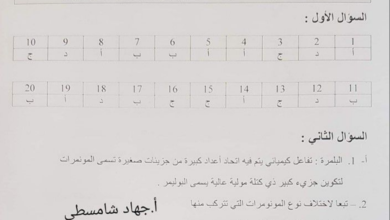 السؤال الأول :
10 9 8 7 6 5 4 3 2 1
ج د أ ب ب أ أ ج د أ
20 19 18 17 16 15 14 13 12 11
ب أ د ب ج ج أ د ب
السؤال الثاني :
أ- 1. البلمرة : تفاعل كيميائي يتم فيه اتحاد أعداد كبيرة من جزيئات صغيرة تسمى المونمرات
لتكوين جزيء كبير ذي كتلة مولية عالية يسمى البوليمر .
2. – تبعا لاختلاف نوع المونومرات التي تتركب منها .
أ.جهاد شامسطي